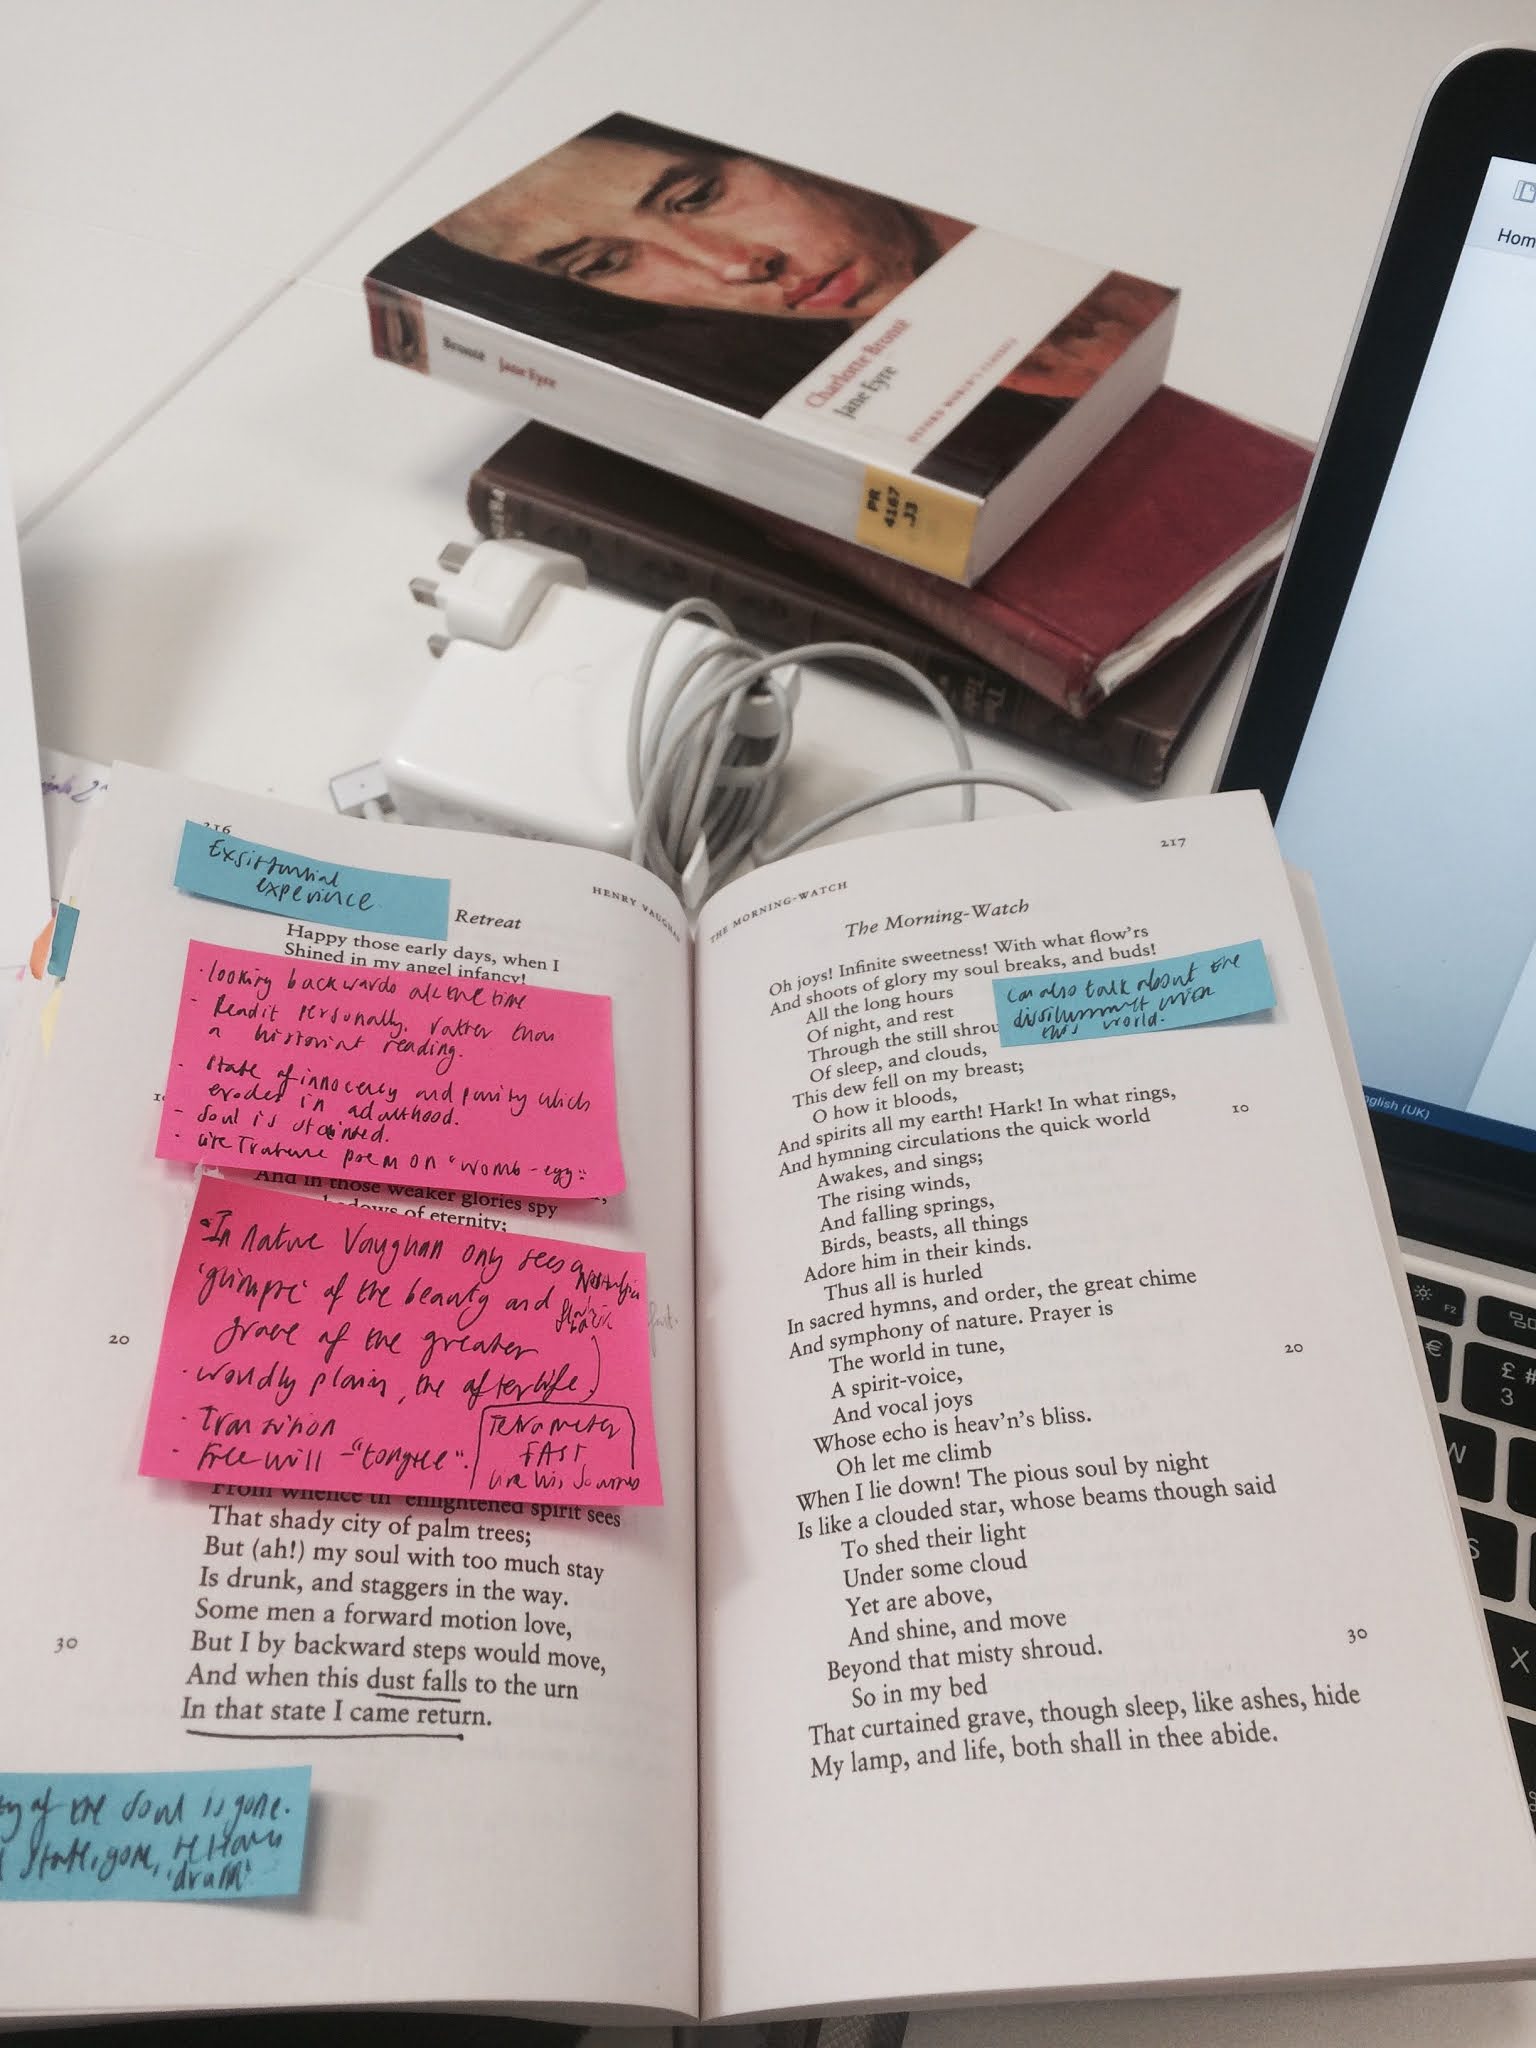 Hom
Charlotte Brontë
Jane Eyre
OXFORD WORLD'S CLASSICS
Brontë Jane Eyre
PR
4167
.J3
English (UK)
216
HENRY VAUGHAN
Exsistential
experience
Retreat
Happy those early days, when I
Shined in my angel infancy!
· looking backwards all the time
- Read it personally. rather than
a historical reading.
- State of innocency and purity which
erodes in adulthood.
- Soul is stainted.
· like Traherne poem on "womb-egg".
And in those weaker glories spy
shadows of eternity;
"In nature Vaughan only sees a
'glimpse' of the beauty and
grave of the greater
· worldly plains, the afterlife.
· Transition
· Free will - "tongue".
Nostalgia
Tetrameter
FAST
like his
20
From whence th' enlightened spirit sees
That shady city of palm trees;
But (ah!) my soul with too much stay
Is drunk, and staggers in the way.
Some men a forward motion love,
30
But I by backward steps would move,
And when this dust falls to the urn
In that state I came return.
of the soul is gone.
state, gone, returns
'drunk'
217
THE MORNING-WATCH
The Morning-Watch
Oh joys! Infinite sweetness! With what flow'rs
And shoots of glory my soul breaks, and buds!
All the long hours
Of night, and rest
Through the still shrou
Of sleep, and clouds,
This dew fell on my breast;
O how it bloods,
And spirits all my earth! Hark! In what rings,
And hymning circulations the quick world 10
Awakes, and sings;
The rising winds,
And falling springs,
Birds, beasts, all things
Adore him in their kinds.
Thus all is hurled
In sacred hymns, and order, the great chime
And symphony of nature. Prayer is
The world in tune,
A spirit-voice, 20
And vocal joys
Whose echo is heav'n's bliss.
Oh let me climb
When I lie down! The pious soul by night
Is like a clouded star, whose beams though said
To shed their light
Under some cloud
Yet are above,
And shine, and move
Beyond that misty shroud. 30
So in my bed
That curtained grave, though sleep, like ashes, hide
My lamp, and life, both shall in thee abide.
Can also talk about the
with
this world.
F2
€
£ #
3
W
S
X